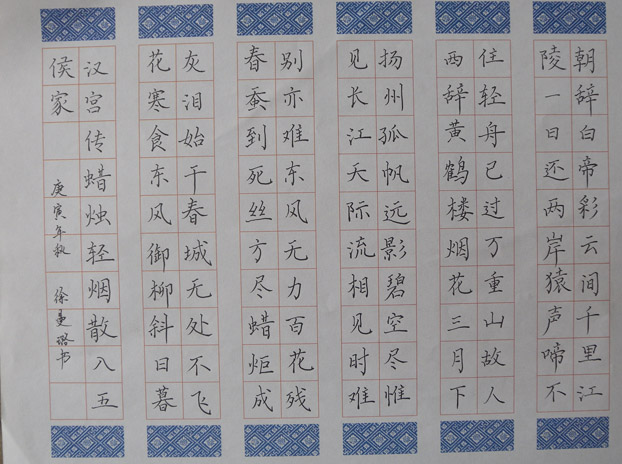 朝辞白帝彩云间千里江
陵一日还两岸猿声啼不
住轻舟已过万重山故人
西辞黄鹤楼烟花三月下
扬州孤帆远影碧空尽惟
见长江天际流相见时难
别亦难东风无力百花残
春蚕到死丝方尽蜡炬成
灰泪始干春城无处不飞
花寒食东风御柳斜日暮
汉宫传蜡烛轻烟散入五
侯家
庚寅年秋 徐曼璐书